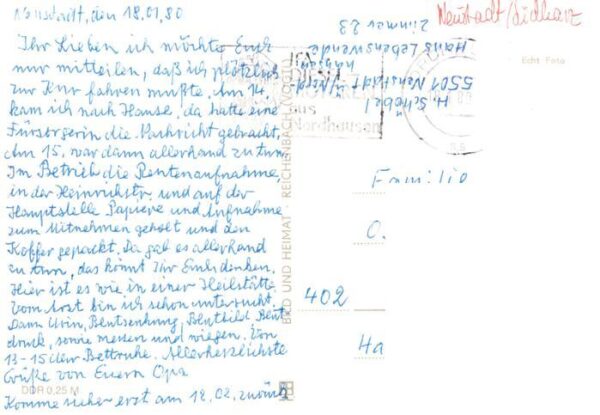 Neustadt, den 18.01.80
Ihr Lieben ich möchte Euch
nur mitteilen, daß ich plötzlich
zur Kur fahren müßte. Am 14.
kam ich nach Hause, da hatte eine
Fürsorgerin die Nachricht gebracht,
Am 15. war dann allerhand zu tun.
Im Betrieb die Rentenaufnahme
in der Heinrichstr. und auf der
Hauptstelle Papiere und Aufnahme
zum Mitnehmen geholt und den
Koffer gepackt. Da gab es allerhand
zu tun, das könnt Ihr Euch denken.
Hier ist es wie in einer Heilstätte
Vom Arzt bin ich schon untersucht.
Dann Urin, Blutsenkung, Blutbild Blut
druck, sowie messen und wiegen. Von
13-15 Uhr Bettruhe. Allerherzlichste
Grüße von Euern Opa
Komme sicher erst am 12.02. zurück
DDR 0,25 M
BILD UND HEIMAT REICHENBACH (VOGTL)
aus
Nordhausen
H. Schöbel
5501 Neustadt
Haus Lebenswende
Zimmer 23
Neustadt/Südharz
Echt Foto
Familie
O.
402
4a